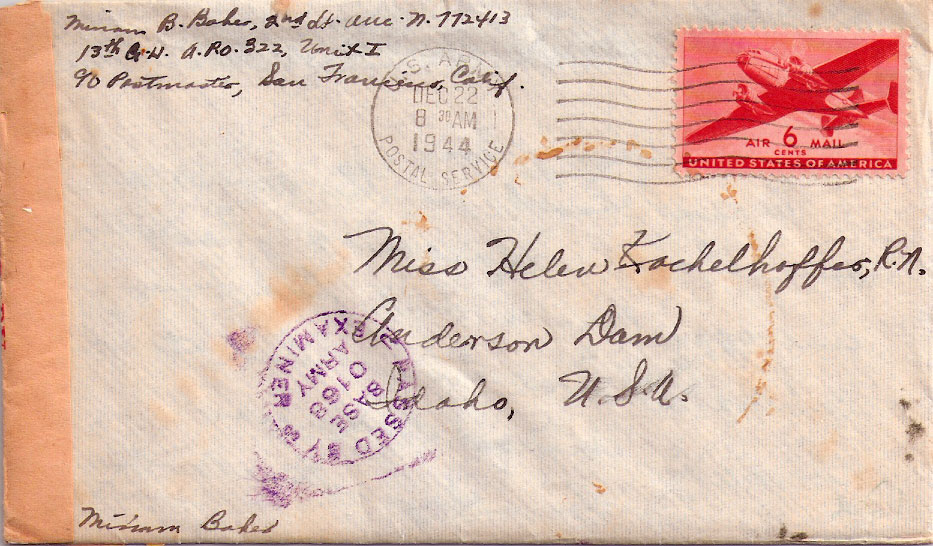 Miriam B. Baker, 2nd Lt. anc. N. 772413
13th G.H. A.P.O. 322, Unit I
℅ Postmaster, San Francisco, Calif.
U.S. ARMY
DEC 22
8 30 AM
1944
POSTAL SERVICE
AIR 6 MAIL
CENTS
UNITED STATES OF AMERICA
Miss Helen Kachelhoffer, R.N.
Anderson Dam
Idaho, U.S.A.
PASSED BY
BASE
0168
ARMY
EXAMINER
Miriam Baker